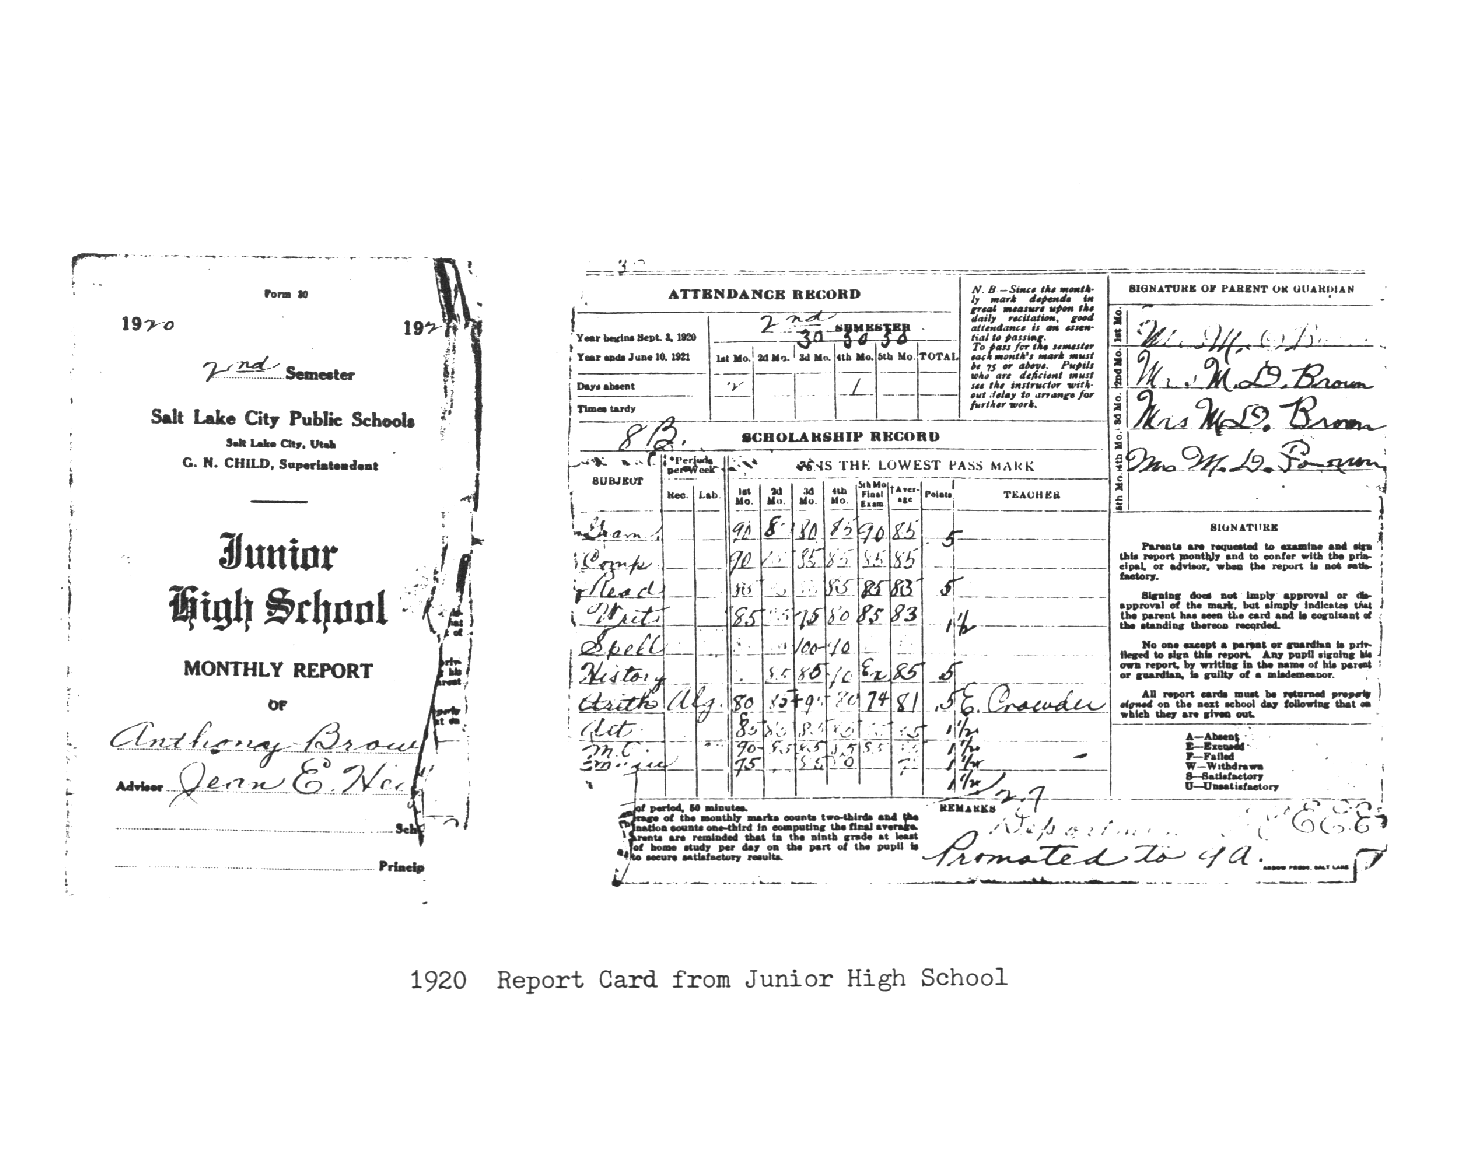 Form 30
1920 192
2nd Semester
Salt Lake City Public Schools
Salt Lake City, Utah
G. N. CHILD, Superintendent
Junior
High School
MONTHLY REPORT
OF
Anthony Brow
Advisor Jean E.
Princip
ATTENDANCE RECORD
2nd SEMESTER
30 30 30
Year begins Sept. 3, 1920
Year ends June 10, 1921
1st Mo. 2d Mo. 3d Mo. 4th Mo. 5th Mo. TOTAL
Days absent 2 1
Times tardy
N. B.—Since the month-
ly mark depends in
great measure upon the
daily recitation, good
attendance is an essen-
tial to passing.
To pass for the semester
each month's mark must
be 75 or above. Pupils
who are deficient must
see the instructor with-
out delay to arrange for
further work.
8B.
SCHOLARSHIP RECORD
SUBJECT
*Periods
per Week
Rec. Lab.
IS THE LOWEST PASS MARK
1st Mo. 2d Mo. 3d Mo. 4th Mo. 5th Mo. Final Exam †Aver-age Points TEACHER
Gram 90 8 80 85 90 85 5
Comp 90 85 85 85 85
Read 85 85 83 5
Writ 85 75 80 85 83 1½
Spell 100
History 85 85 Ex 85 5
Arith Alg. 80 80 74 81 5 E. Crowder
Art 1½
M.T. 90 85 85 85 85 1½
75 1½
27
of period, 60 minutes.
rage of the monthly marks counts two-thirds and the
ination counts one-third in computing the final average.
rents are reminded that in the ninth grade at least
of home study per day on the part of the pupil is
to secure satisfactory results.
REMARKS
Deportmen EEEE
Promoted to 9A.
SIGNATURE OF PARENT OR GUARDIAN
1st Mo.
2nd Mo. Mrs. M. D. Brown
3d Mo. Mrs M. D. Brown
4th Mo. Mrs M. D. Brown
5th Mo.
SIGNATURE
Parents are requested to examine and sign
this report monthly and to confer with the prin-
cipal, or advisor, when the report is not satis-
factory.
Signing does not imply approval or dis-
approval of the mark, but simply indicates that
the parent has seen the card and is cognizant of
the standing thereon recorded.
No one except a parent or guardian is priv-
ileged to sign this report. Any pupil signing his
own report, by writing in the name of his parent
or guardian, is guilty of a misdemeanor.
All report cards must be returned properly
signed on the next school day following that on
which they are given out.
A—Absent
E—Excused
F—Failed
W—Withdrawn
S—Satisfactory
U—Unsatisfactory
1920 Report Card from Junior High School